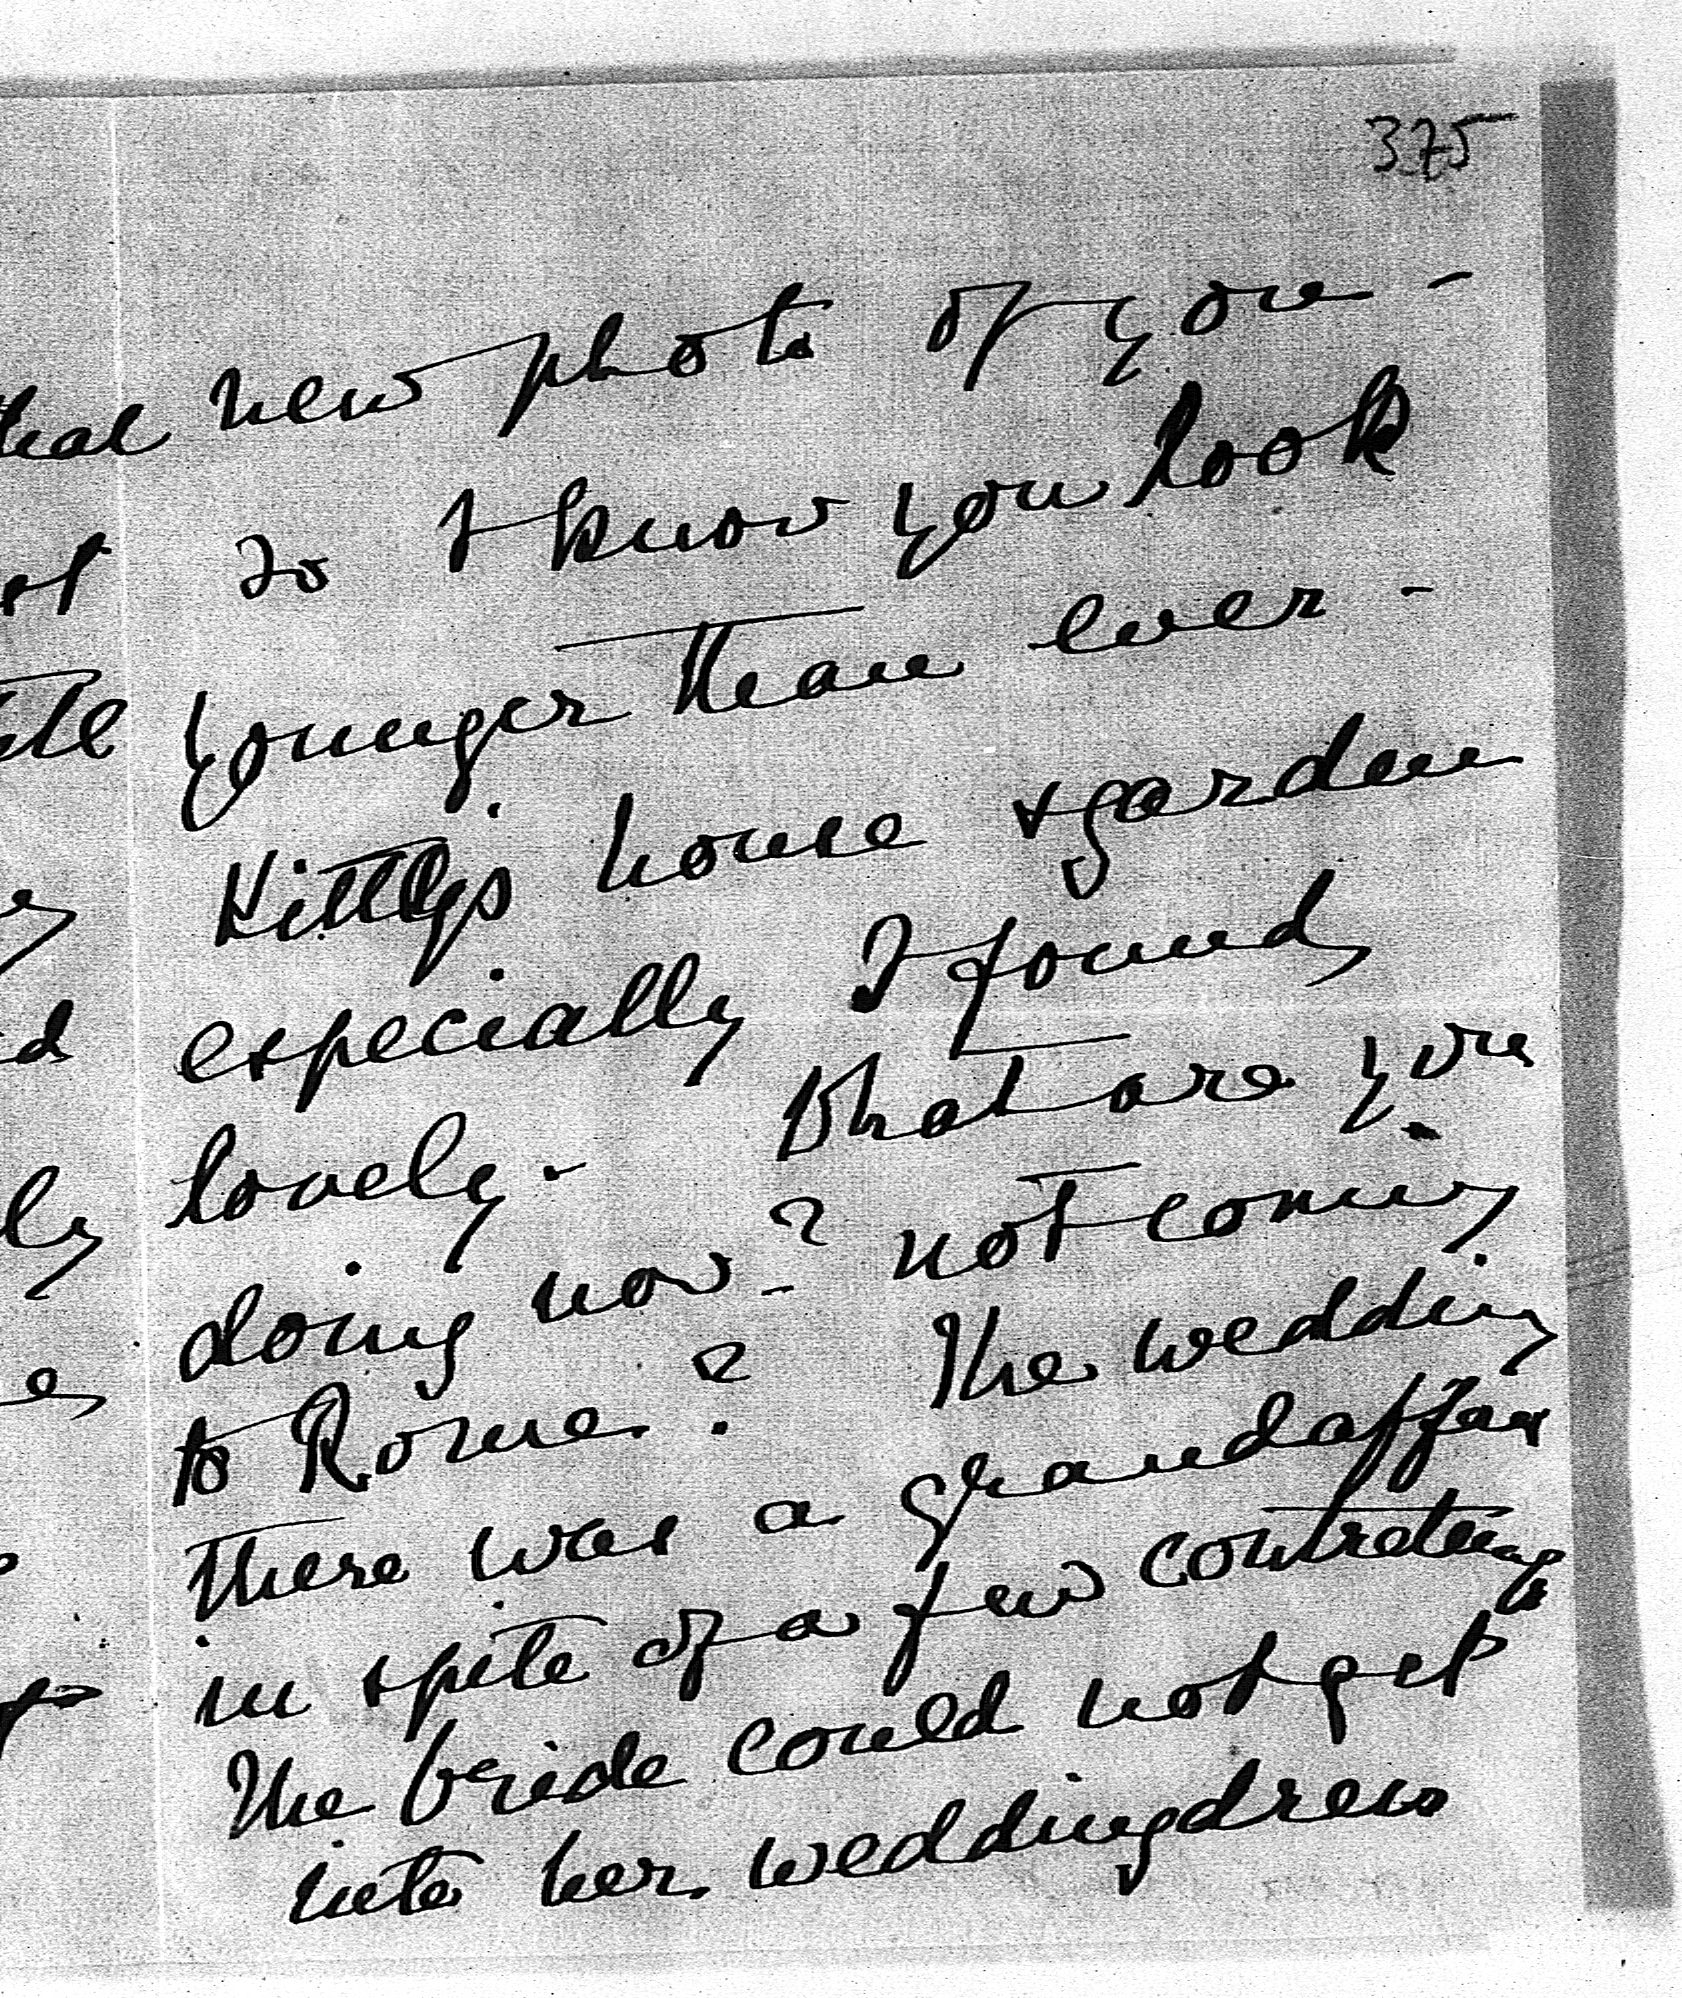 375
new photo of you -
so I know you look
younger than ever -
Kitty's house & garden
especially I found
lovely - What are you
doing now? not coming
to Rome? The wedding
there was a grand affair
in spite of a few contretemps
The bride could not get
into her weddingdress